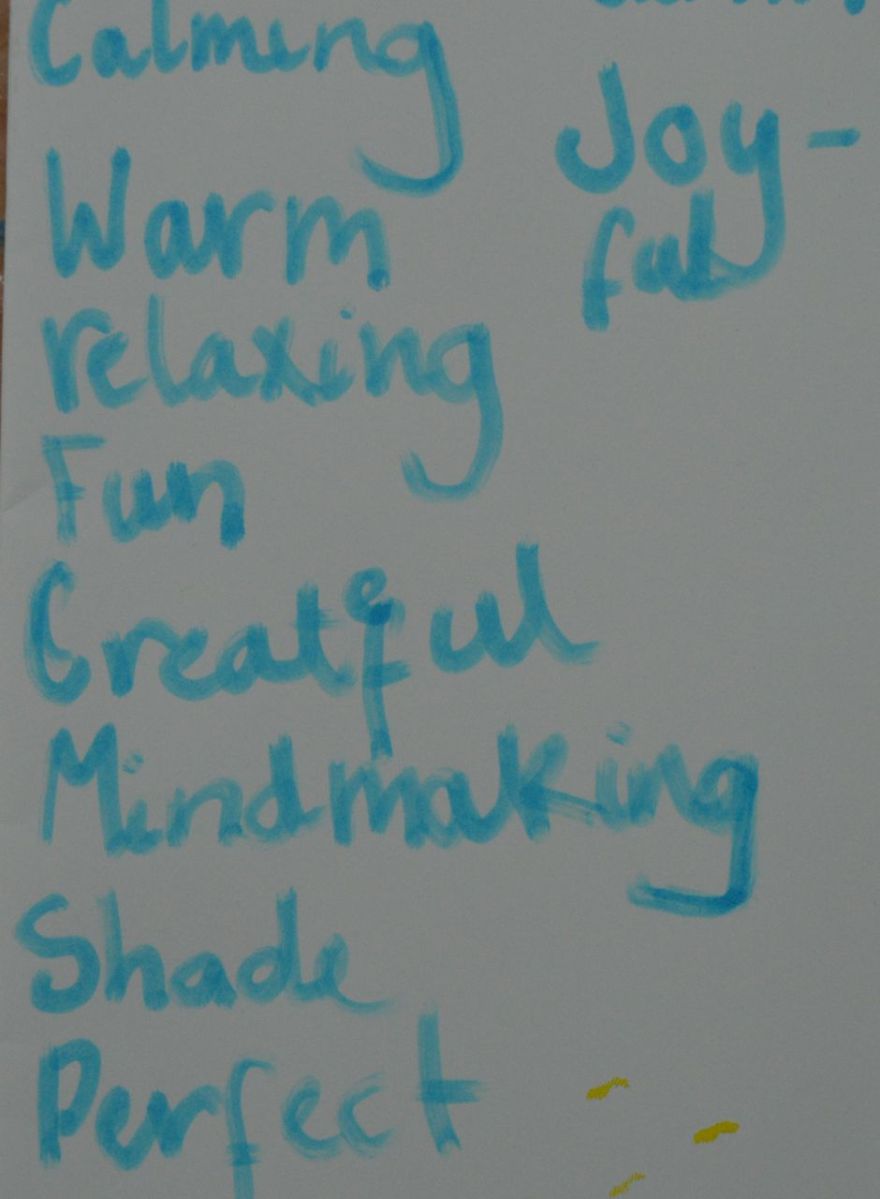 Calming
Warm
relaxing
Fun
Greatful
Mindmaking
Shade
Perfect
Joy-
ful